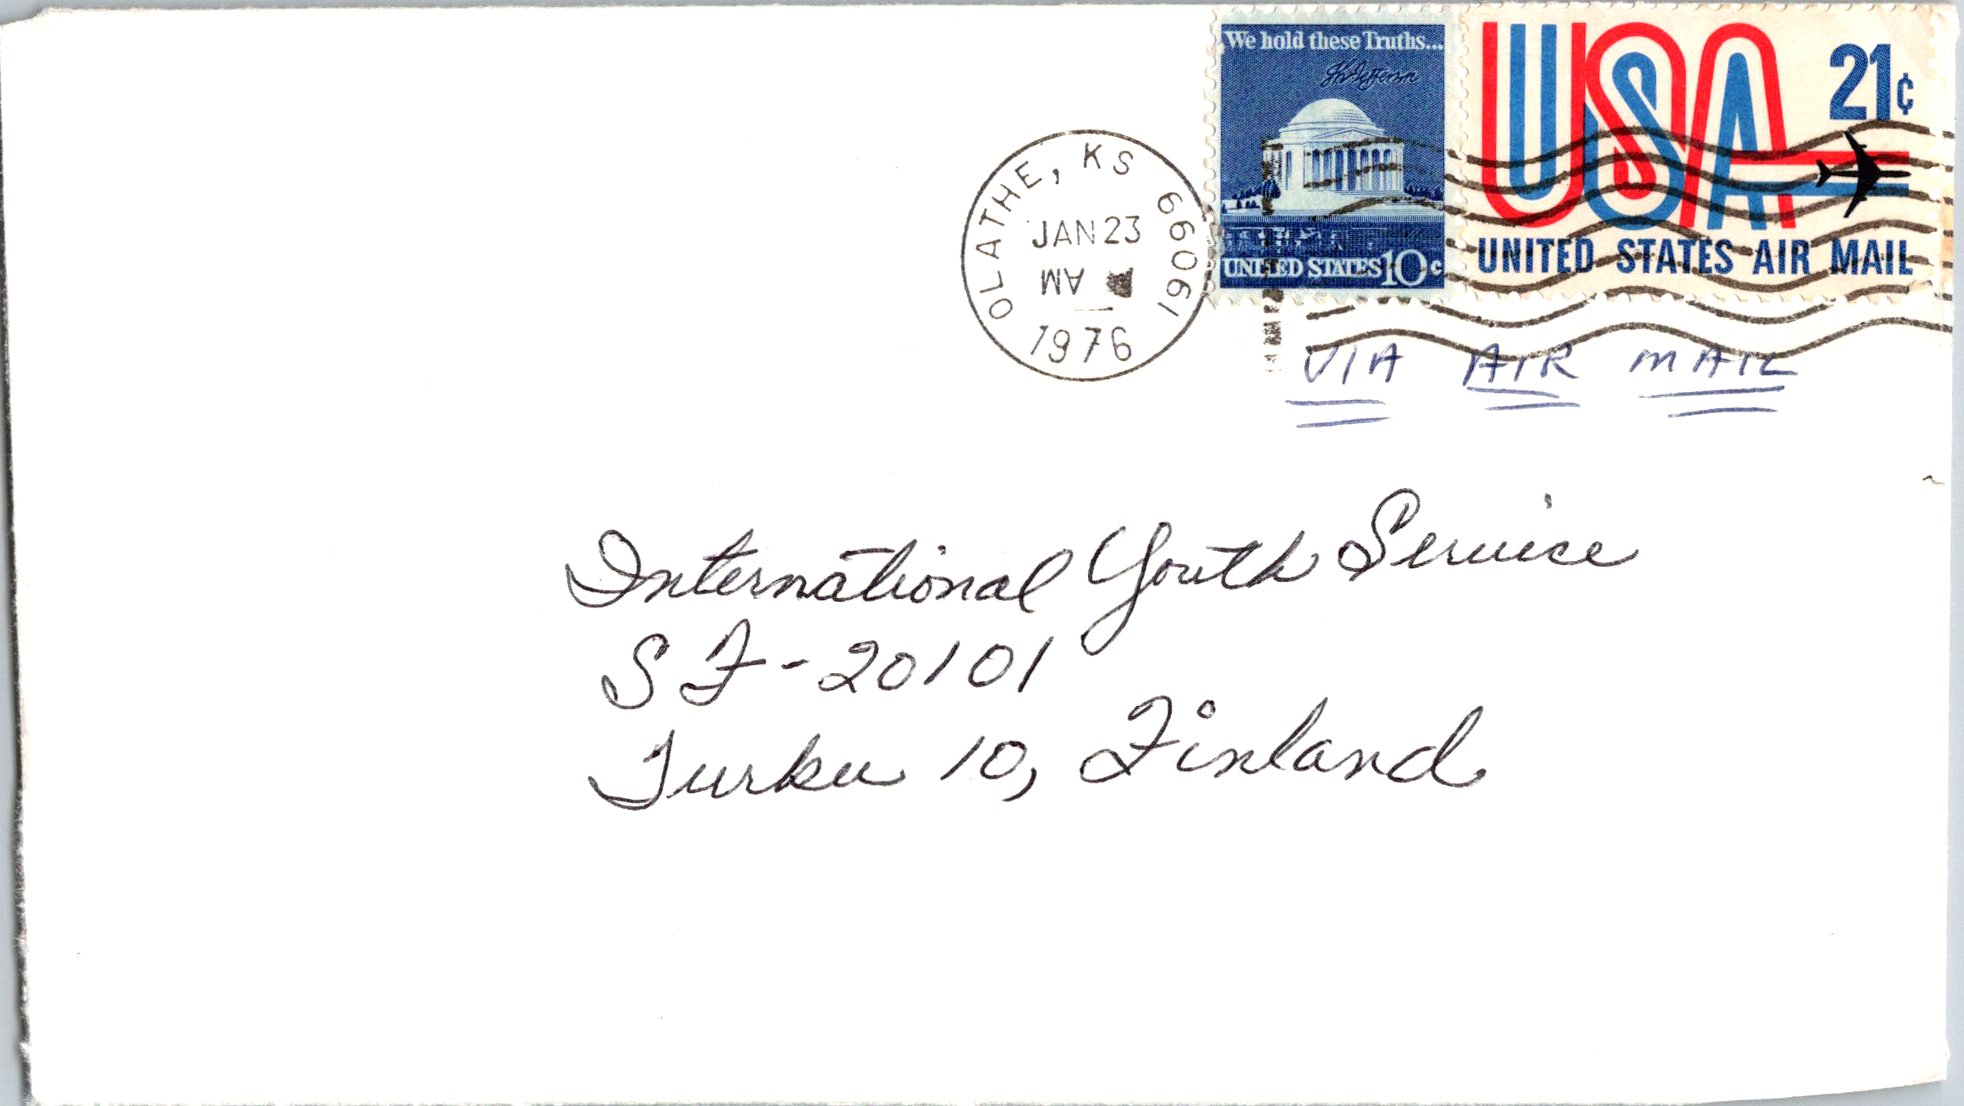 We hold these Truths...
Th Jefferson
UNITED STATES 10c
USA
21¢
UNITED STATES AIR MAIL
OLATHE, KS 66061
JAN 23
AM
1976
VIA AIR MAIL
International Youth Service
SF-20101
Turku 10, Finland